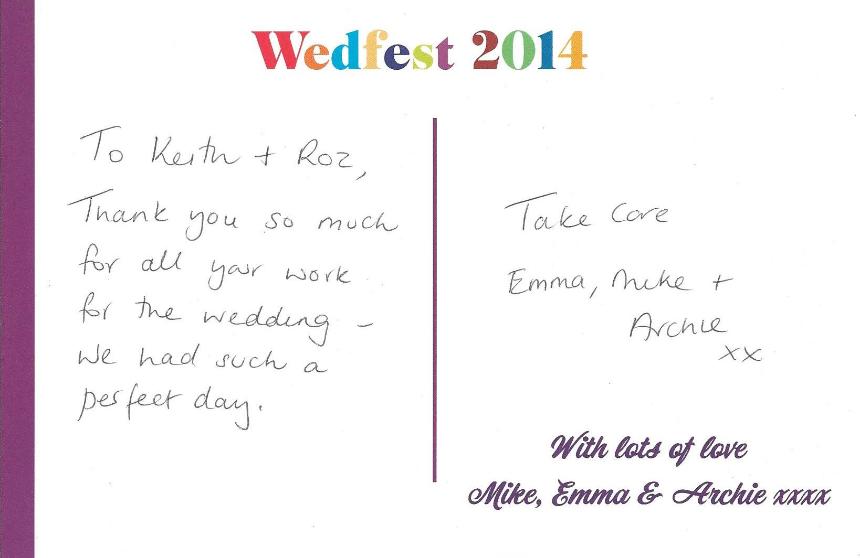 Wedfest 2014
To Keith + Roz,
Thank you so much
for all your work
for the wedding -
we had such a
perfect day.
Take Care
Emma, Mike +
Archie
xx
With lots of love
Mike, Emma & Archie xxxx